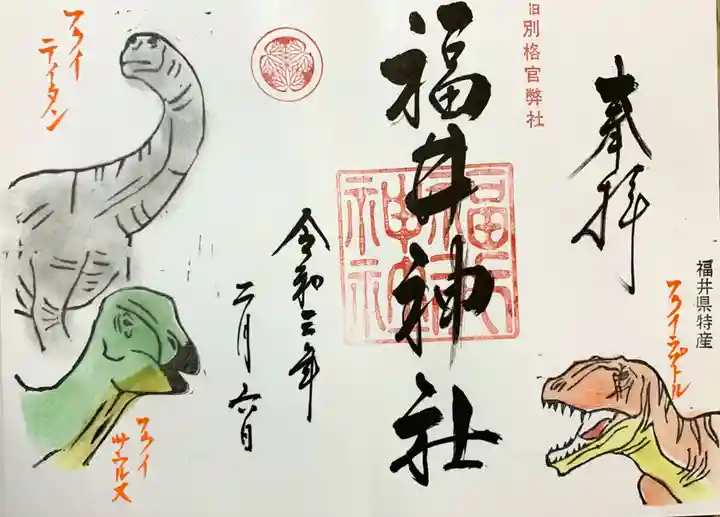 奉拝
福井県特産
フクイラプトル
旧別格官弊社
福井神社
福井神社
令和三年
二月六日
フクイティタン
フクイサウルス